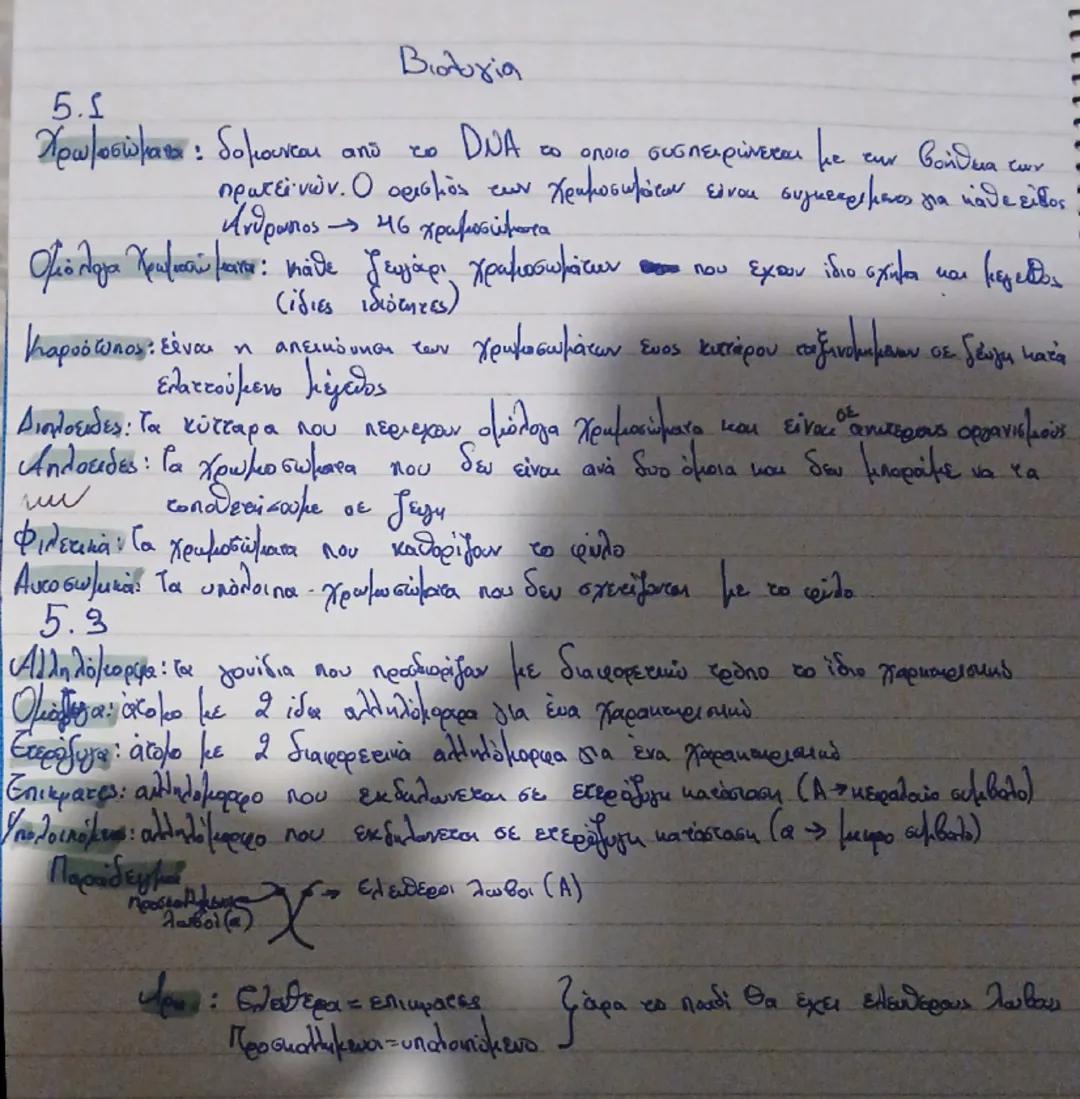 Βιολογία
5.1
Χρωμοσώματα: δομουνται από το DNA το οποιο συσπειρώνεται με την βοήθεια των
πρωτεϊνών. Ο ορισμός των Χρωμοσωμάτων είναι συγκεκριμενος για κάθε είδος
Άνθρωπος → 46 χρωμοσώματα
Ομόλογα Χρωμοσώματα: κάθε ζευγάρι χρωμοσωμάτων που εχουν ίδιο σχήμα και μεγεθος
(ίδιες ιδιότητες)
Καρυότυπος: Είναι η απεικόνιση των χρωμοσωμάτων ενος κυττάρου ταξινομημενων σε ζεύγη κατά
ελαττούμενο μέγεθος
Διπλοειδες: Τα κύτταρα που περιεχουν ομόλογα χρωμοσώματα και είναι σε ανωτερους οργανισμούς
Απλοειδες: Τα χρωμοσωματα που δεν είναι ανά δυο όμοια και δεν μπορούμε να τα
τοποθετήσουμε σε ζευγη
Φυλετικά: Τα χρωμοσώματα που καθορίζουν το φύλο
Αυτοσωμικά: Τα υπόλοιπα - χρωμοσώματα που δεν σχετίζονται με το φύλο
5.3
Αλληλόμορφα: τα γονίδια που προσδιορίζουν με διαφορετικό τρόπο το ίδιο χαρακτηριστικό
Ομόζυγα: άτομο με 2 ίδια αλληλόμορφα για ένα χαρακτηριστικό
Ετερόζυγα: άτομο με 2 διαφορετικά αλληλόμορφα για ένα χαρακτηριστικό
Επικρατες: αλληλομορφο που εκδηλωνεται σε ετερόζυγη κατάσταση (Α → κεφαλαίο συμβολο)
Υπολοιπόμενο: αλληλόμορφο που εκδηλωνεται σε ετερόζυγη κατάσταση (α → μικρο συμβολο)
Παράδειγμα
→ Ελευθεροι λωβοι (Α)
προσκολλημενοι
λωβοί (α)
Άρα: Ελευθερα = επικρατες } άρα το παιδί θα έχει ελευθερους λωβους
Προσκολλημενα = υπολοιπόμενο